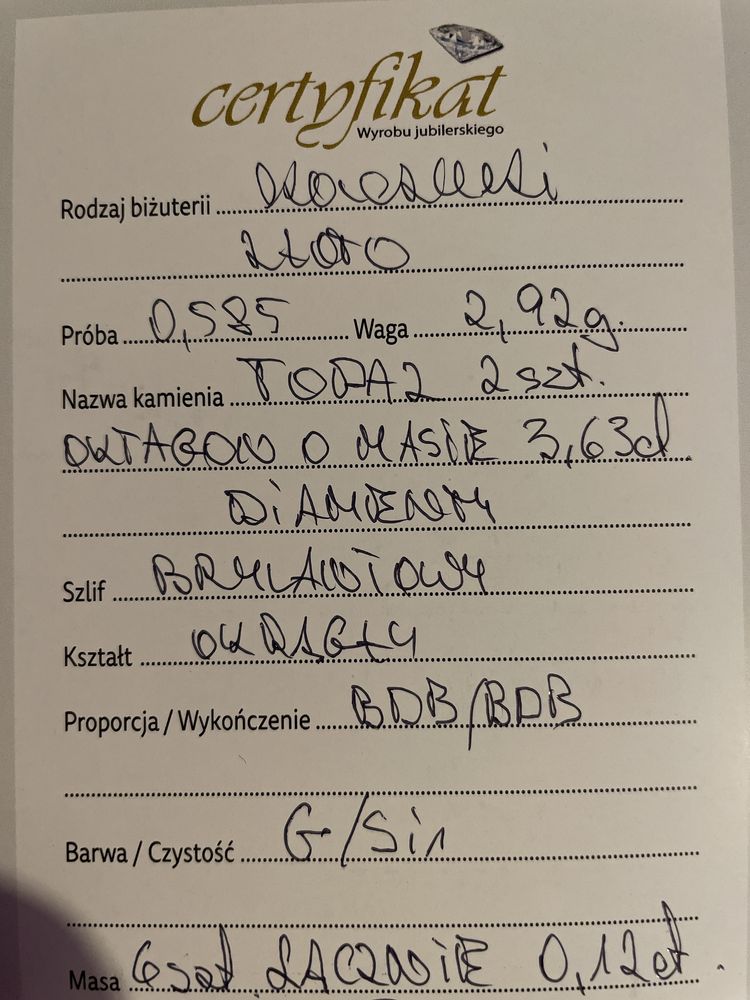 certyfikat
Wyrobu jubilerskiego
Rodzaj biżuterii Kolczyki
złoto
Próba 0,585 Waga 2,92g.
Nazwa kamienia TOPAZ 2 szt.
OKTAGON O MASIE 3,63ct.
DiAMENTY
Szlif BRYLANTOWY
Kształt OKRĄGŁY
Proporcja / Wykończenie BDB/BDB
Barwa / Czystość G/Si1
Masa 6 szt ŁĄCZNiE 0,12ct.